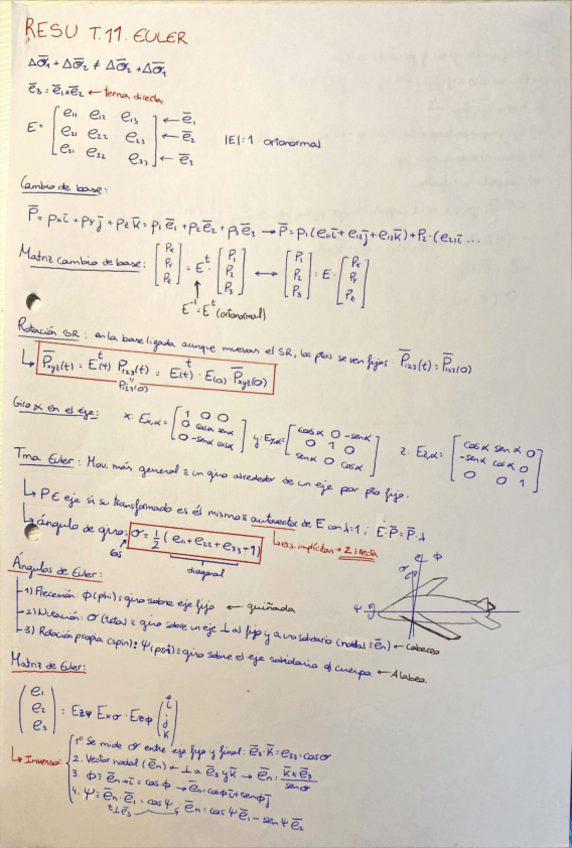 RESU T.11. EULER
Δσ̄₁ + Δσ̄₂ ≠ Δσ̄₂ + Δσ̄₁
ē₃ = ē₁×ē₂ ← terna directa
E = [e₁₁ e₁₂ e₁₃] ← ē₁
[e₂₁ e₂₂ e₂₃] ← ē₂ |E|=1 ortonormal
[e₃₁ e₃₂ e₃₃] ← ē₃
Cambio de base:
P̄ = pxī + pyj̄ + pzk̄ = p₁ē₁ + p₂ē₂ + p₃ē₃ → P̄ = p₁(e₁₁ī + e₁₂j̄ + e₁₃k̄) + p₂·(e₂₁ī ...
Matriz cambio de base: [Px Py Pz] = Eᵗ [P₁ P₂ P₃] ↔ [P₁ P₂ P₃] = E· [Px Py Pz]
E⁻¹=Eᵗ (ortonormal)
Rotación SR: en la base ligada aunque muevan el SR, los ptos se ven fijos P̄₁₂₃(t) = P̄₁₂₃(0)
↳ P̄xyz(t) = Eᵗ(t) P₁₂₃(t) = Eᵗ(t) · E(0) · P̄xyz(0)
P₁₂₃(0)
Giro α en el eje: x: Ex,α = [1 0 0; 0 cosα senα; 0 -senα cosα] y: Ey,α = [cosα 0 -senα; 0 1 0; senα 0 cosα] z: Ez,α = [cosα senα 0; -senα cosα 0; 0 0 1]
Tma Euler: Mov. más general = un giro alrededor de un eje por pto fijo.
↳ P ∈ eje si su transformado es él mismo = autovector de E con λ=1; E·P̄ = P̄·λ
↳ ecs. implícitas → 2 = recta
↳ ángulo de giro: σ = 1/2 (e₁₁ + e₂₂ + e₃₃ + 1)
cos
diagonal
Ángulos de Euler:
1) Precesión: φ(phi) = giro sobre eje fijo ← guiñada
2) Nutación: σ = giro sobre un eje ⊥ al fijo y a uno solidario (nodal = ēn) ← Cabeceo
3) Rotación propia (spin): ψ(psi) = giro sobre el eje solidario al cuerpo. ← Alabeo.
φ
σ
ψ
Matriz de Euler:
(e₁ e₂ e₃) = Ezψ Exσ · Ezφ (i j k)
↳ Inverso:
1º Se mide σ entre eje fijo y final: ē₃·k̄ = e₃₃ = cosσ
2. Vector nodal (ēn) ← ⊥ a ē₃ y k̄ → ēn = k̄×ē₃ / senσ
3. φ = ēn·ī = cosφ → ēn = cosφī + senφj̄
4. ψ = ēn·ē₁ = cosψ ; ēn = cosψ ē₁ - senψ ē₂